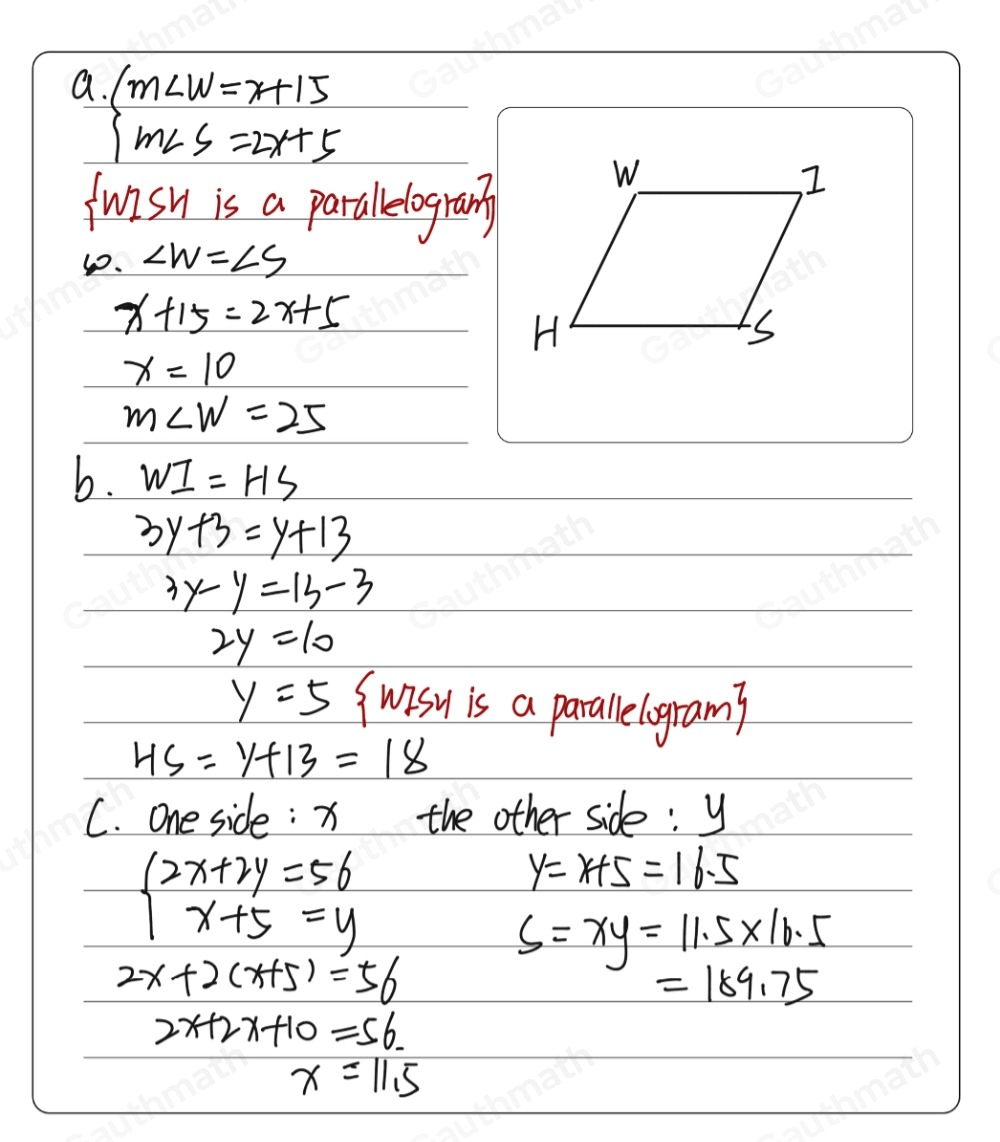 a. { m∠W = x+15
m∠S = 2x+5
{WISH is a parallelogram}
∠W = ∠S
x+15 = 2x+5
x = 10
m∠W = 25
W I
H S
b. WI = HS
3y+3 = y+13
3y-y = 13-3
2y = 10
y = 5 {WISH is a parallelogram}
HS = y+13 = 18
C. One side : x the other side : y
{ 2x+2y = 56 y = x+5 = 16.5
x+5 = y S = xy = 11.5×16.5
2x+2(x+5) = 56 = 189.75
2x+2x+10 = 56
x = 11.5
Gauthmath